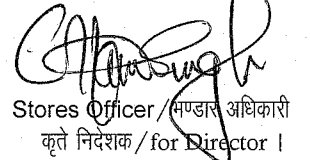 Stores Officer/भण्डार अधिकारी
कृते निदेशक/for Director |